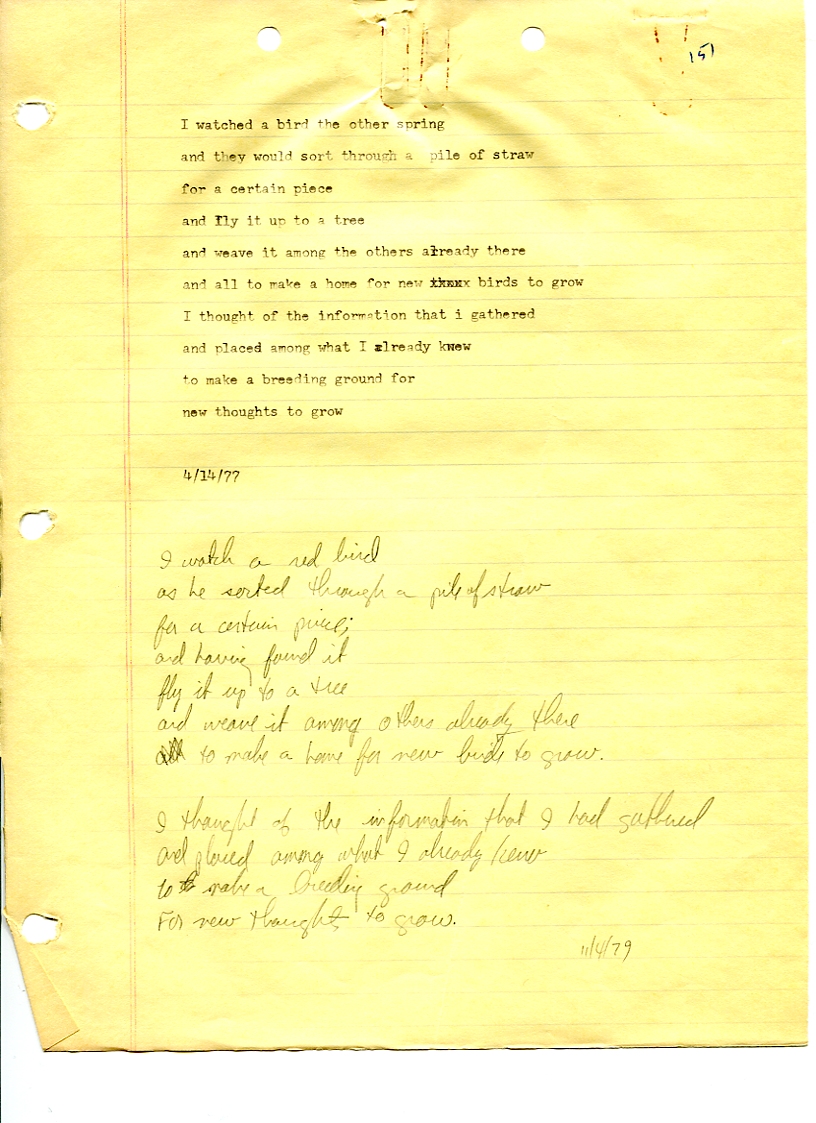 151
I watched a bird the other spring
and they would sort through a pile of straw
for a certain piece
and fly it up to a tree
and weave it among the others already there
and all to make a home for new birds to grow
I thought of the information that i gathered
and placed among what I already knew
to make a breeding ground for
new thoughts to grow
4/14/77
I watch a red bird
as he sorted through a pile of straw
for a certain piece;
and having found it
fly it up to a tree
and weave it among others already there
to make a home for new birds to grow.
I thought of the information that I had gathered
and placed among what I already knew
to make a breeding ground
For new thoughts to grow.
11/4/79